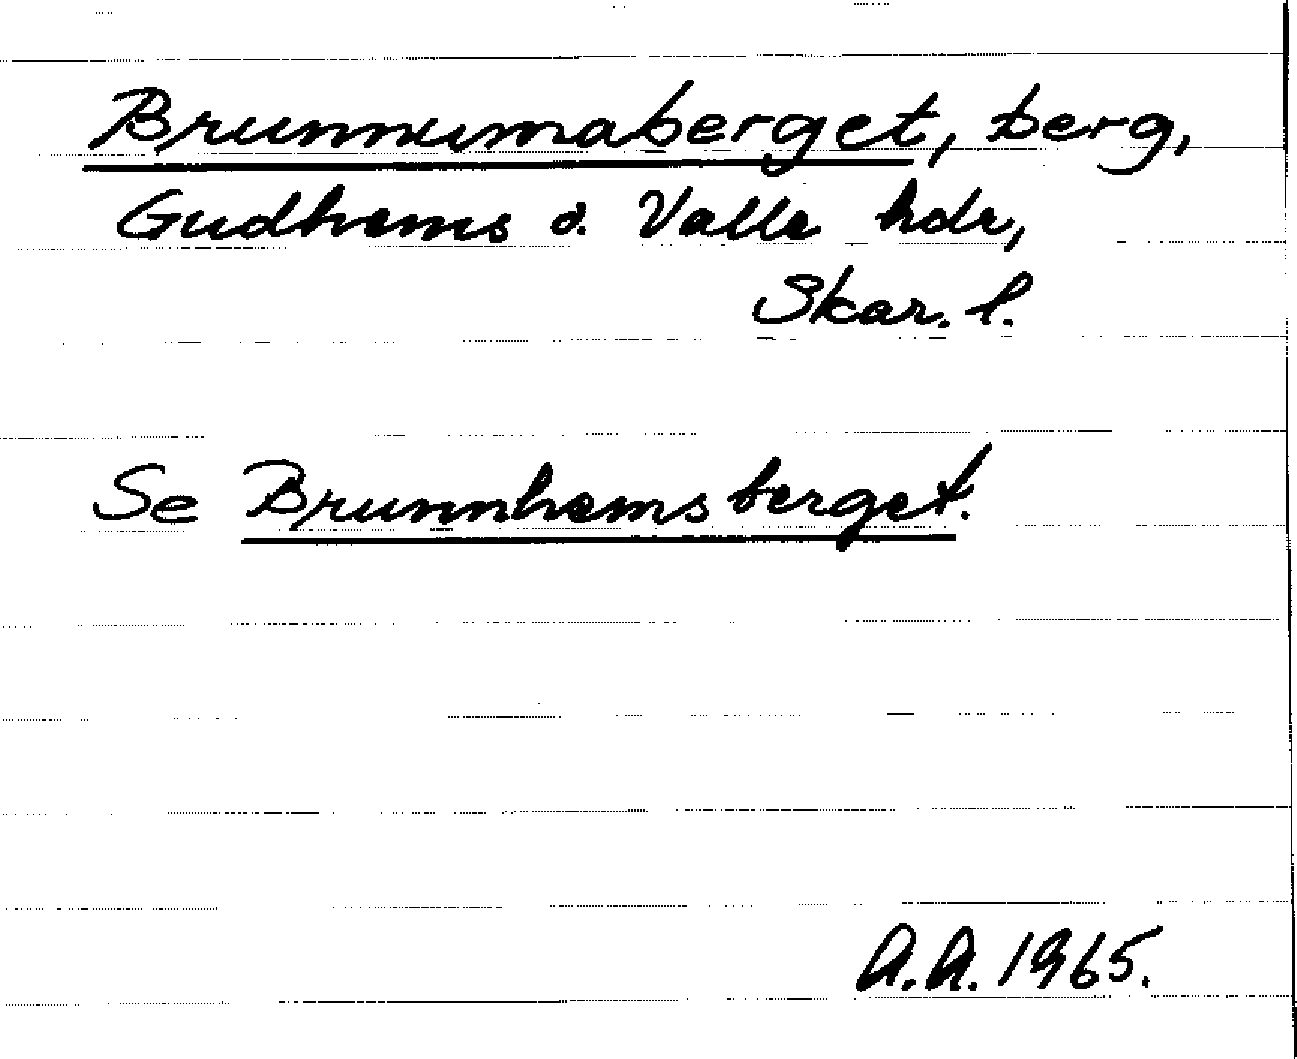 Brunnumaberget, berg,
Gudhems o. Valle hdr,
Skar. l.
Se Brunnhemsberget.
A.A. 1965.